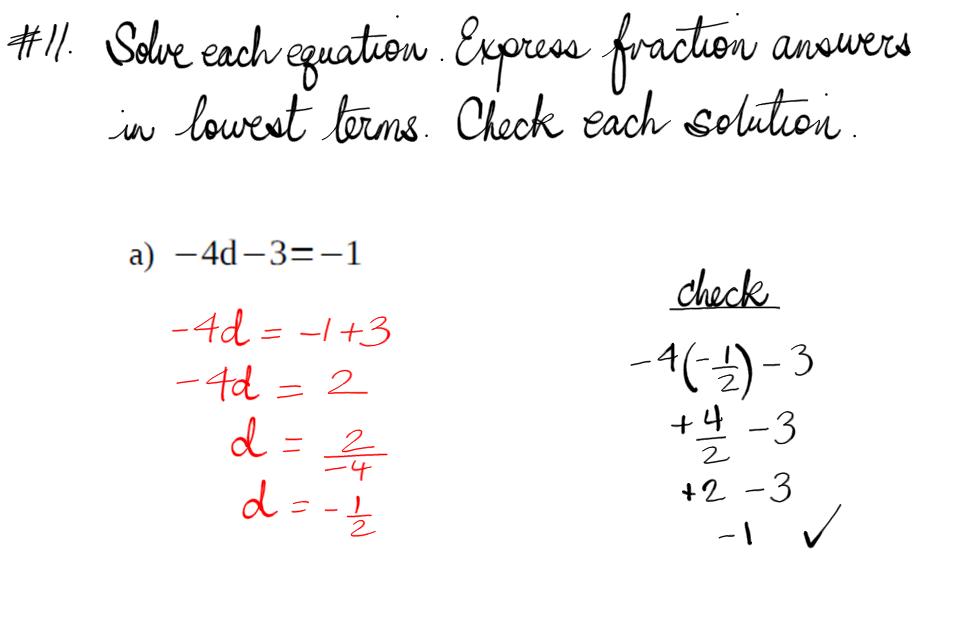 #11. Solve each equation. Express fraction answers
in lowest terms. Check each solution.
a) −4d−3=−1
check
-4d = -1+3
-4d = 2
d = 2/-4
d = -1/2
-4(-1/2) - 3
+4/2 - 3
+2 - 3
-1 ✓